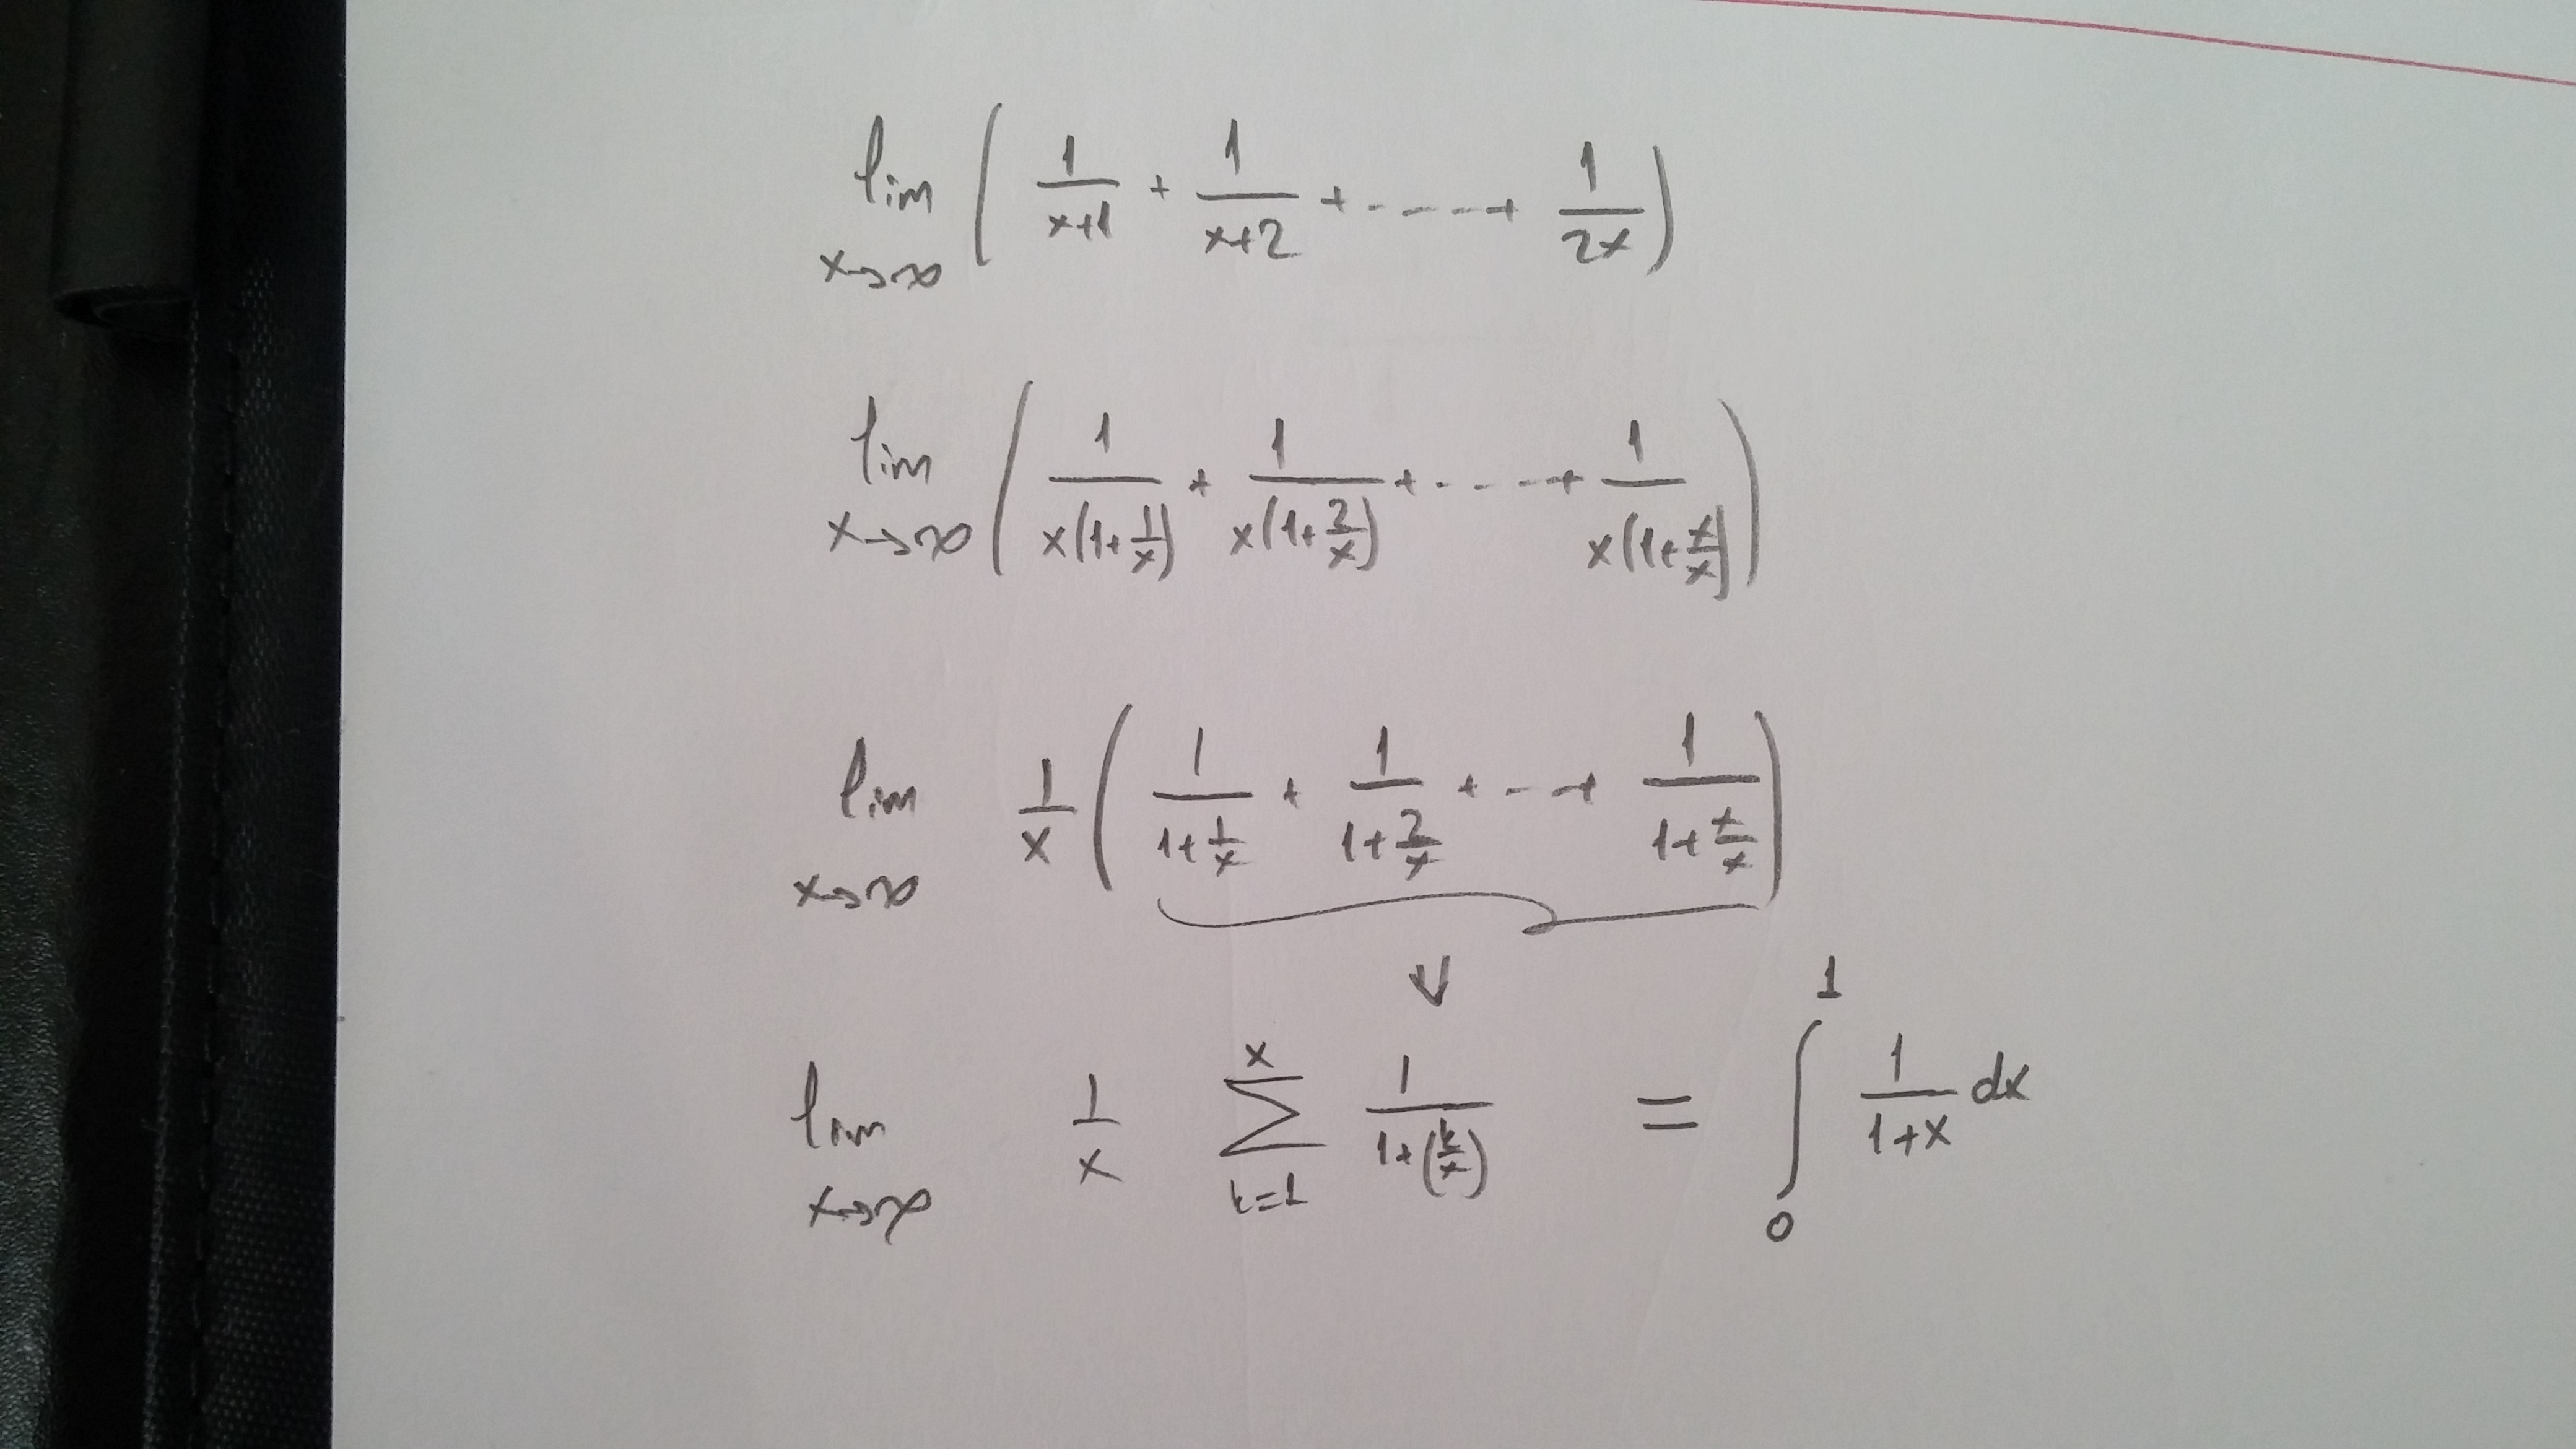 lim x→∞ ( 1/(x+1) + 1/(x+2) + ----+ 1/(2x) )
lim x→∞ ( 1/(x(1+1/x)) + 1/(x(1+2/x)) + ----+ 1/(x(1+x/x)) )
lim x→∞ 1/x ( 1/(1+1/x) + 1/(1+2/x) + --+ 1/(1+x/x) )
lim x→∞ 1/x ∑_{k=1}^{x} 1/(1+(k/x)) = ∫_0^1 1/(1+x) dx